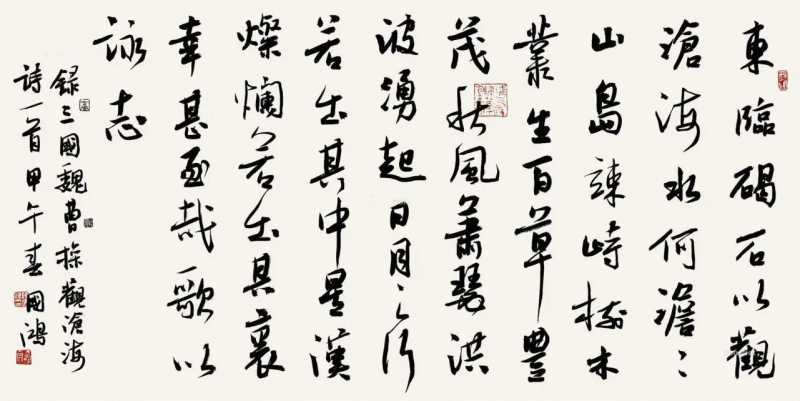 東臨碣石以觀
滄海水何澹々
山島竦峙樹木
叢生百草豐
茂秋風蕭瑟洪
波湧起日月之行
若出其中星漢
燦爛若出其裏
幸甚至哉歌以
詠志
錄三國魏曹操觀滄海
詩一首甲午春國鴻